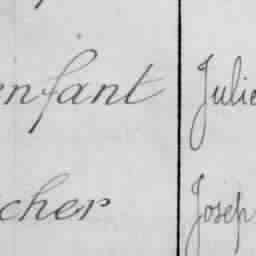 enfant Julie
cher Josep